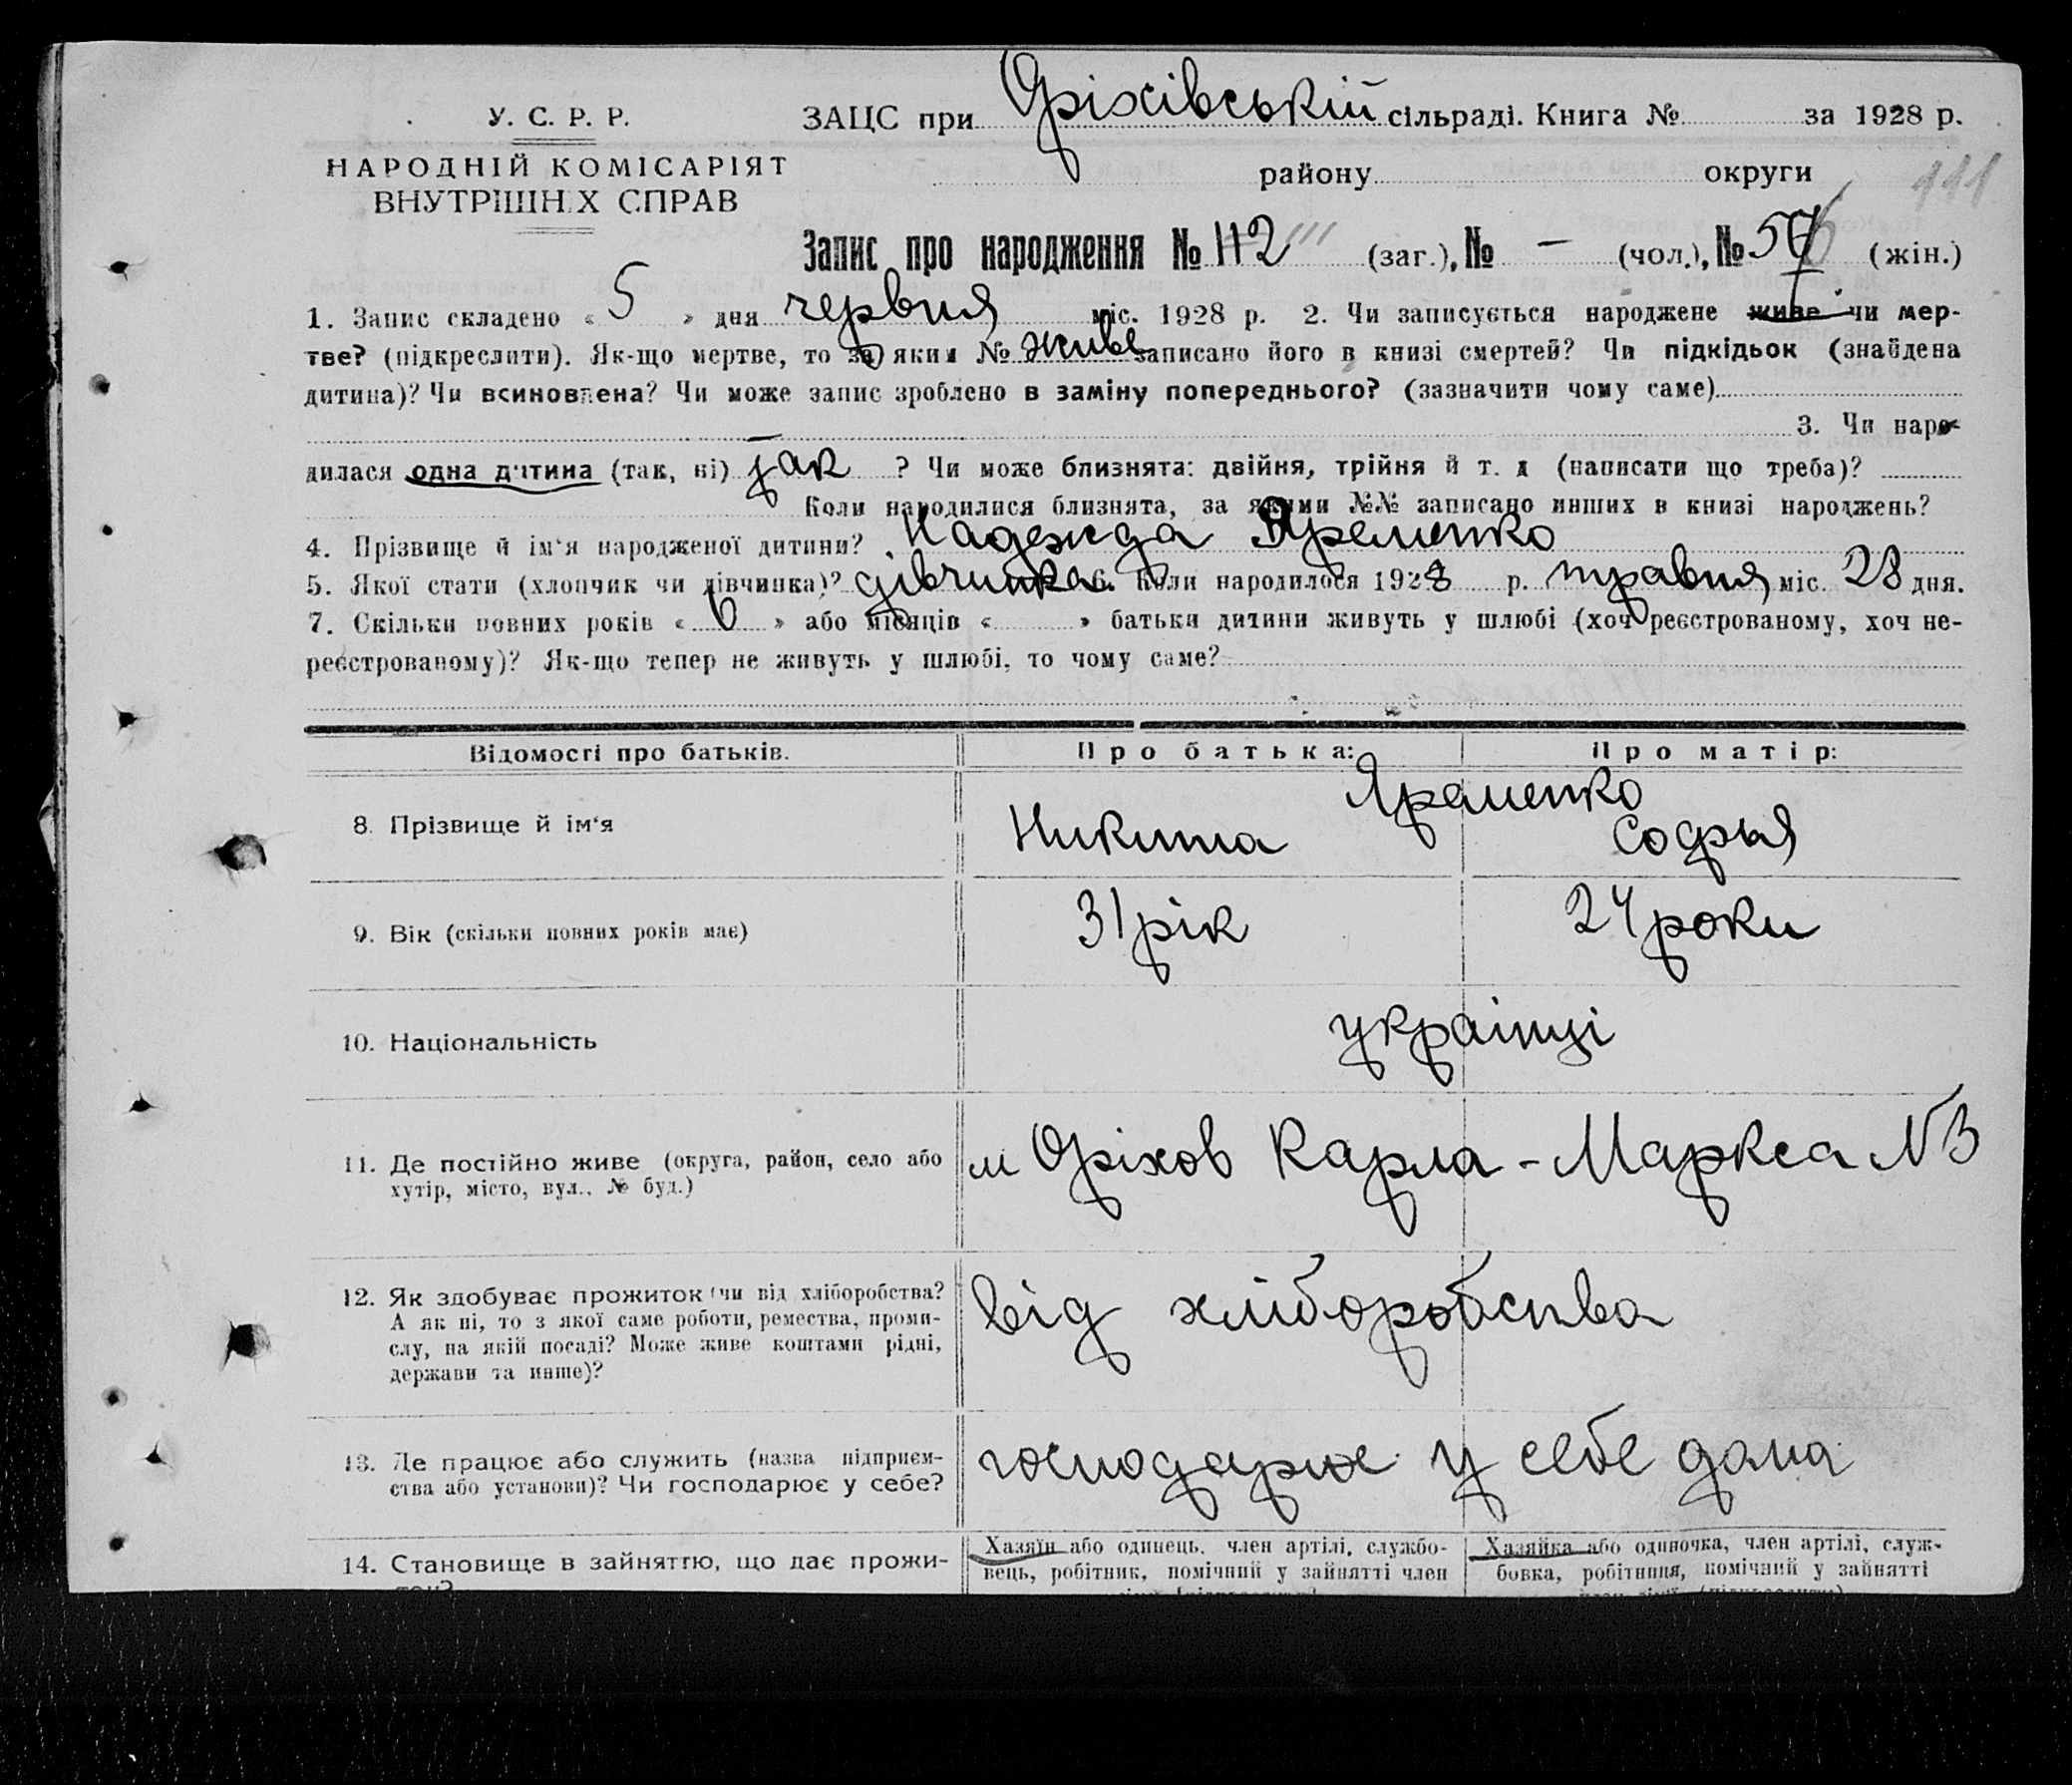 У. С. Р. Р.
НАРОДНІЙ КОМІСАРІЯТ
ВНУТРІШНІХ СПРАВ
ЗАЦС при Оріхівській сільраді. Книга № за 1928 р.
району округи
111
Запис про народження № 112 111 (заг.), № — (чол.), № 57 6 (жін.)
1. Запис складено « 5 » дня червня міс. 1928 р. 2. Чи записується народжене живе чи мер-
тве? (підкреслити). Як-що мертве, то за яким № живе записано його в книзі смертей? Чи підкідьок (знайдена
дитина)? Чи всиновлена? Чи може запис зроблено в заміну попереднього? (зазначити чому саме)
3. Чи наро-
дилася одна дитина (так, ні) так ? Чи може близнята: двійня, трійня й т. д (написати що треба)?
Коли народилися близнята, за якими №№ записано инших в книзі народжень?
4. Прізвище й ім'я народженої дитини? Надежда Яременко
5. Якої стати (хлопчик чи дівчинка)? дівчинка 6. Коли народилося 1928 р. травня міс. 28 дня.
7. Скільки повних років « 6 » або місяців « » батьки дитини живуть у шлюбі (хоч реєстрованому, хоч не-
реєстрованому)? Як-що тепер не живуть у шлюбі, то чому саме?
Відомості про батьків. Про батька: Про матір:
Яременко
8. Прізвище й ім'я Никита Софья
9. Вік (скільки повних років має) 31 рік 24 роки
10. Національність українці
11. Де постійно живе (округа, район, село або
хутір, місто, вул., № буд.)
м Оріхов Карла - Маркса №3
12. Як здобуває прожиток (чи від хліборобства?
А як ні, то з якої саме роботи, ремества, проми-
слу, на якій посаді? Може живе коштами рідні,
держави та инше)?
від хліборобства
13. Де працює або служить (назва підприєм-
ства або установи)? Чи господарює у себе?
господарює у себе дома
14. Становище в зайняттю, що дає прожи-
Хазяїн або одинець, член артілі, службо-
вець, робітник, помічний у зайнятті член
Хазяйка або одиночка, член артілі, служ-
бовка, робітниця, помічний у зайнятті